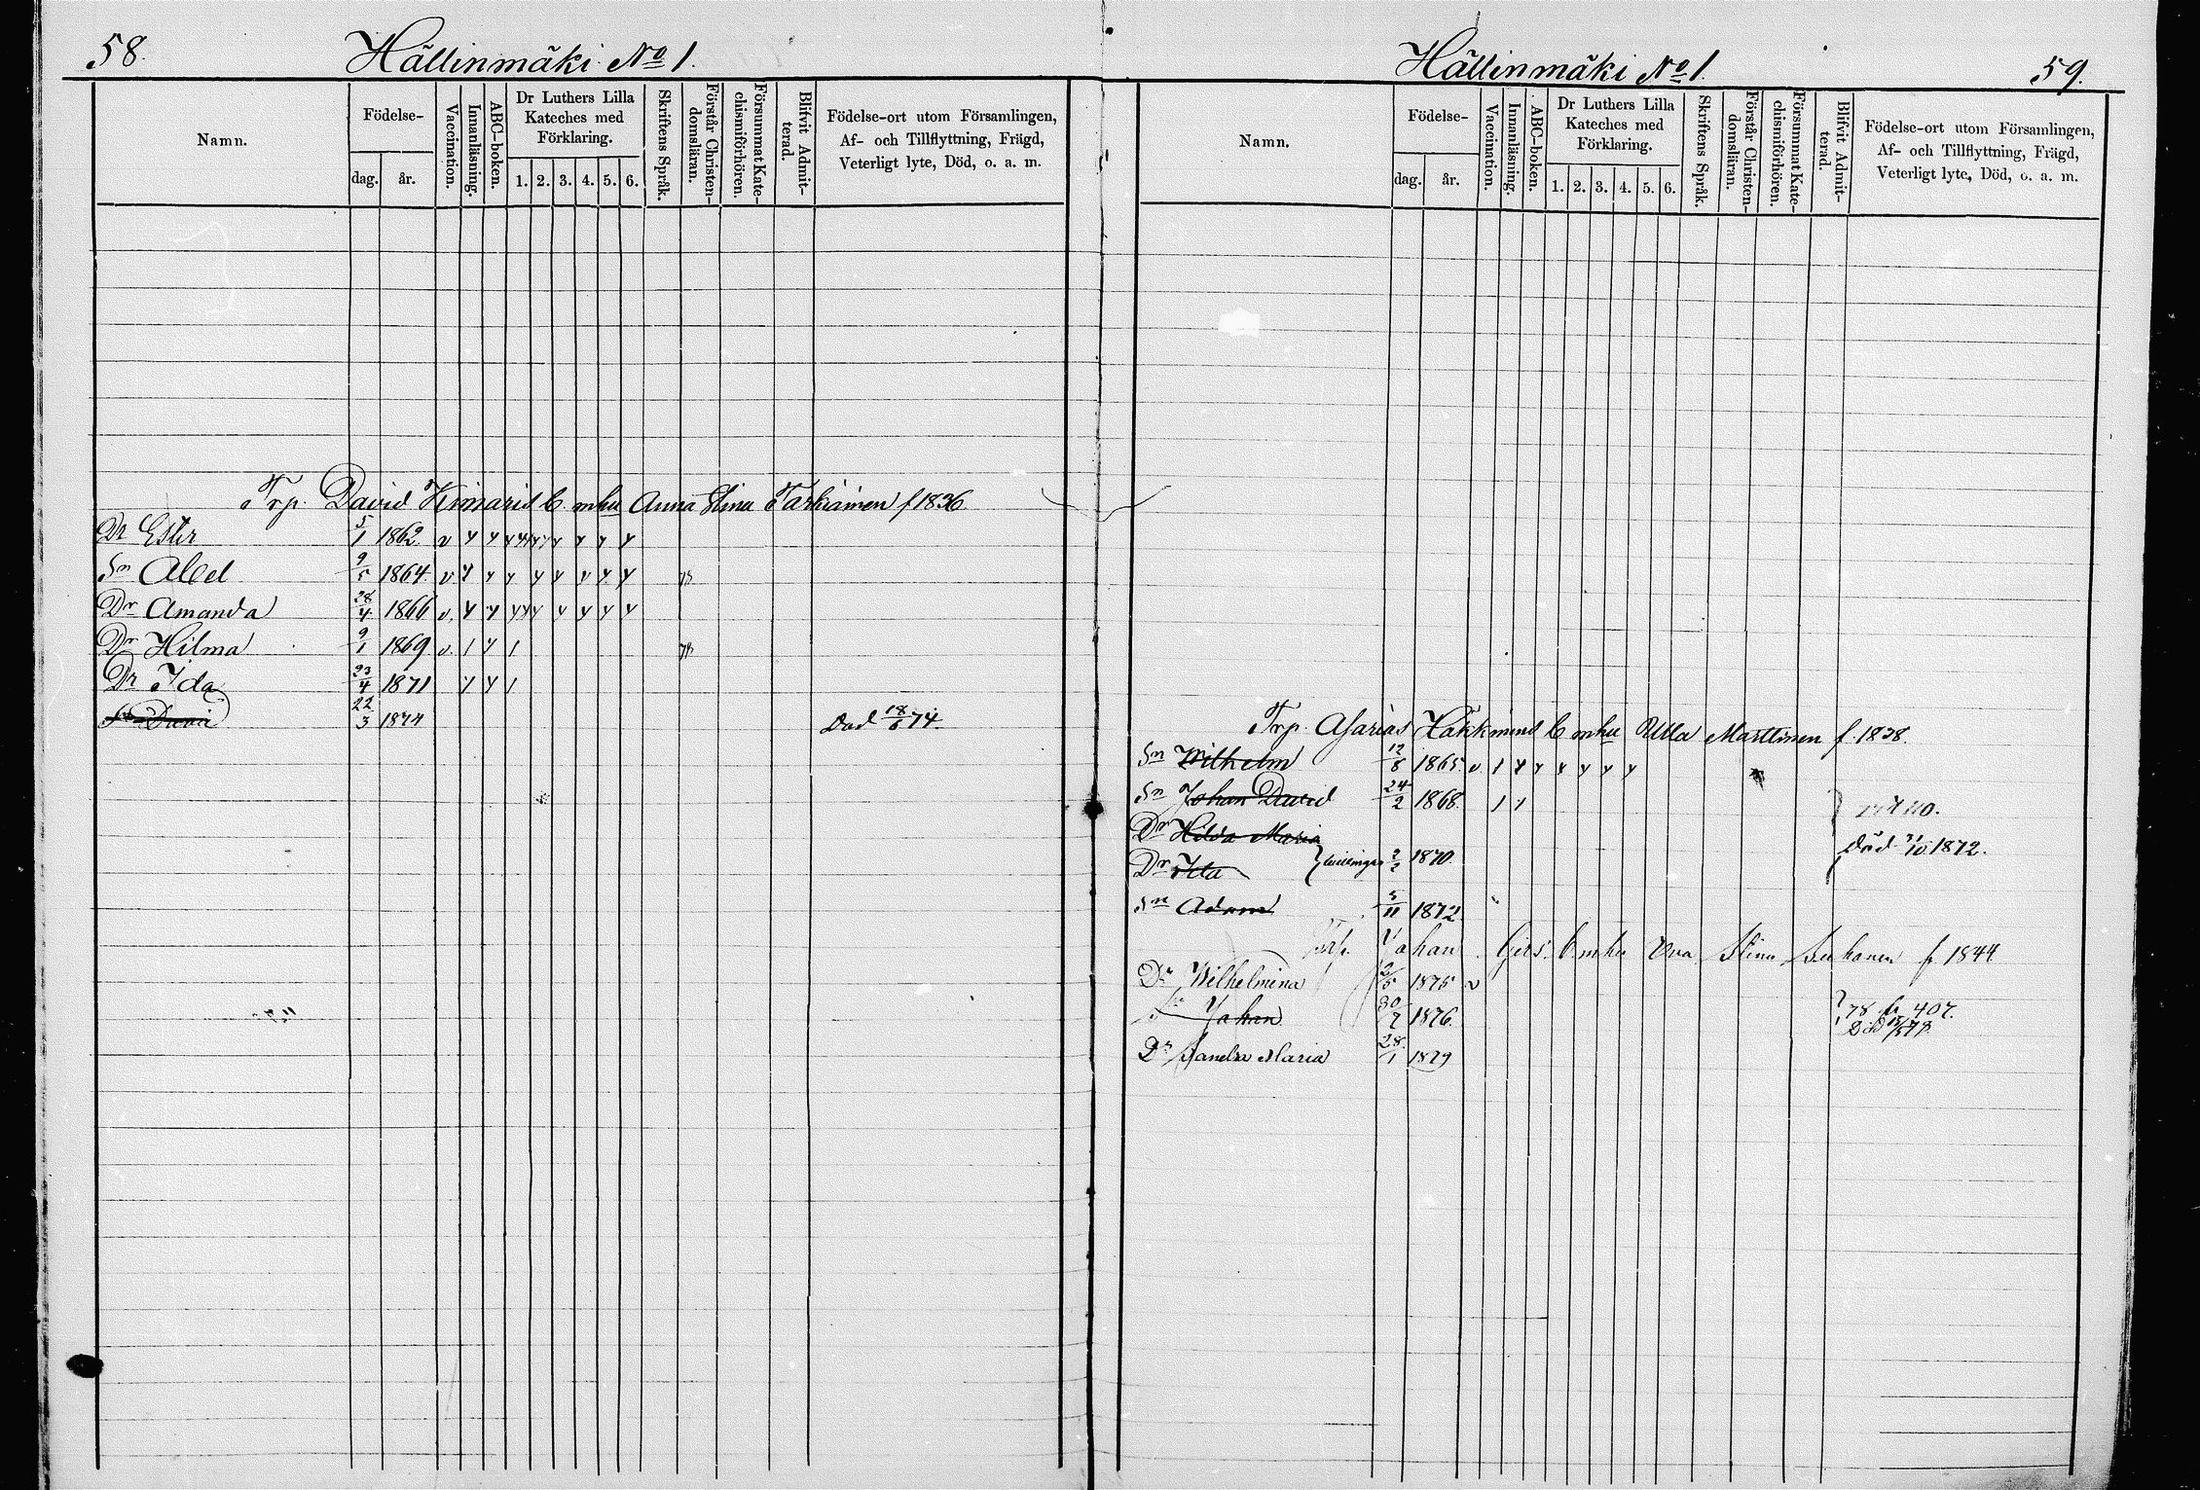 58. Hällinmäki No 1.
Namn.
Födelse-
dag. år.
Vaccination.
Innanläsning.
ABC-boken.
Dr Luthers Lilla Kateches med Förklaring.
1. 2. 3. 4. 5. 6.
Skriftens Språk.
Förstår Christendomsläran.
Försummat Katechismiförhören.
Blifvit Admitterad.
Födelse-ort utom Församlingen,
Af- och Tillflyttning, Frägd,
Veterligt lyte, Död, o. a. m.
Trp. David Kinnaris b. mhu Anna Stina Tarkiainen f 1836
Dr Ester 5/1 1862 v y y y y y y y y y
Sn Abel 9/5 1864 v y y y y y y y y
Dr Amanda 28/4 1866 v. y y y y y y y y y
Dr Hilma 9/1 1869 v. 1 y 1
Dr Ida 23/4 1871 y y 1
Sn David 22/3 1874 Död 18/6 74.
Hällinmäki No 1. 59.
Namn.
Födelse-
dag. år.
Vaccination.
Innanläsning.
ABC-boken.
Dr Luthers Lilla Kateches med Förklaring.
1. 2. 3. 4. 5. 6.
Skriftens Språk.
Förstår Christendomsläran.
Försummat Katechismiförhören.
Blifvit Admitterad.
Födelse-ort utom Församlingen,
Af- och Tillflyttning, Frägd,
Veterligt lyte, Död, o. a. m.
Trp. Asarias Häkkinens b mhu Ulla Marttinen f. 1838.
Sn Wilhelm 12/8 1865. v 1 y y y y y y y
Sn Johan David 24/2 1868. 1 1
Dr Hilda Maria
Dr Ida tvillingar 2/2 1870. död /10 1872.
Sn Adam 5/11 1872
Trp. Johan b. mhu Eva Stina f 1844
Dr Wilhelmina /5 1875 v
Sn Johan 30/7 1876. 78 fr 407.
Dr Sandra Maria 28/1 1879